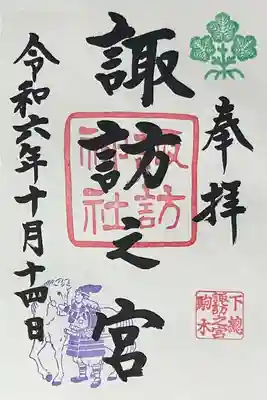 奉拝
諏訪之宮
諏訪神社
令和六年十月十四日
下総
諏訪之宮
駒木